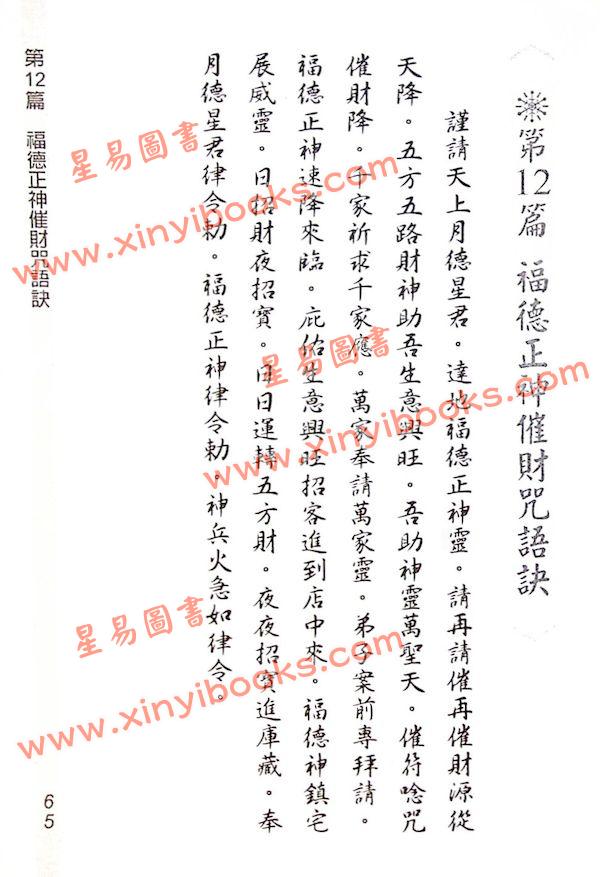 第12篇 福德正神催財咒語訣
謹請天上月德星君。達地福德正神靈。請再請催再催財源從
天降。五方五路財神助吾生意興旺。吾助神靈萬聖天。催符唸咒
催財降。千家祈求千家應。萬家奉請萬家靈。弟子案前專拜請。
福德正神速降來臨。庇佑生意興旺招客進到店中來。福德神鎮宅
展威靈。日招財夜招寶。日日運轉五方財。夜夜招寶進庫藏。奉
月德星君律令勅。福德正神律令勅。神兵火急如律令。
第12篇 福德正神催財咒語訣
65
星易圖書
www.xinyibooks.com
星易圖書
www.xinyibooks.com
星易圖書
www.xinyibooks.com